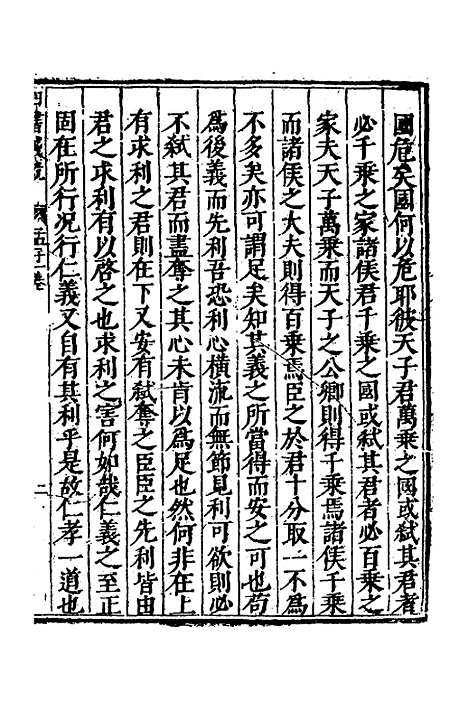 國危矣國何以危耶彼天子君萬乘之國或弑其君者
必千乘之家諸侯君千乘之國或弑其君者必百乘之
家夫天子萬乘而天子之公卿則得千乘焉諸侯千乘
而諸侯之大夫則得百乘焉臣之於君十分取一不爲
不多矣亦可謂足矣知其義之所當得而安之可也苟
爲後義而先利吾恐利心橫流而無節見利可欲則必
不弑其君而盡奪之其心未肯以爲足也然何非在上
有求利之君則在下又安有弑奪之臣臣之先利皆由
君之求利有以啓之也求利之害何如哉仁義之至正
固在所行况行仁義又自有其利乎是故仁孝一道也
四書
孟子卷
二